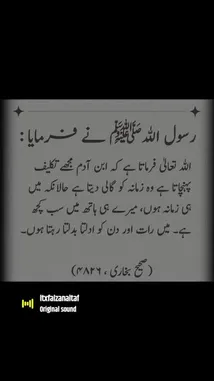 رسول اللہ ﷺ نے فرمایا:
اللہ تعالیٰ فرماتا ہے کہ ابن آدم مجھے تکلیف
پہنچاتا ہے وہ زمانہ کو گالی دیتا ہے حالانکہ میں
ہی زمانہ ہوں، میرے ہی ہاتھ میں سب کچھ
ہے۔ میں رات اور دن کو ادلتا بدلتا رہتا ہوں۔
(صحیح بخاری، ۴۸۲۶)
itxfaizanaltaf
Original sound